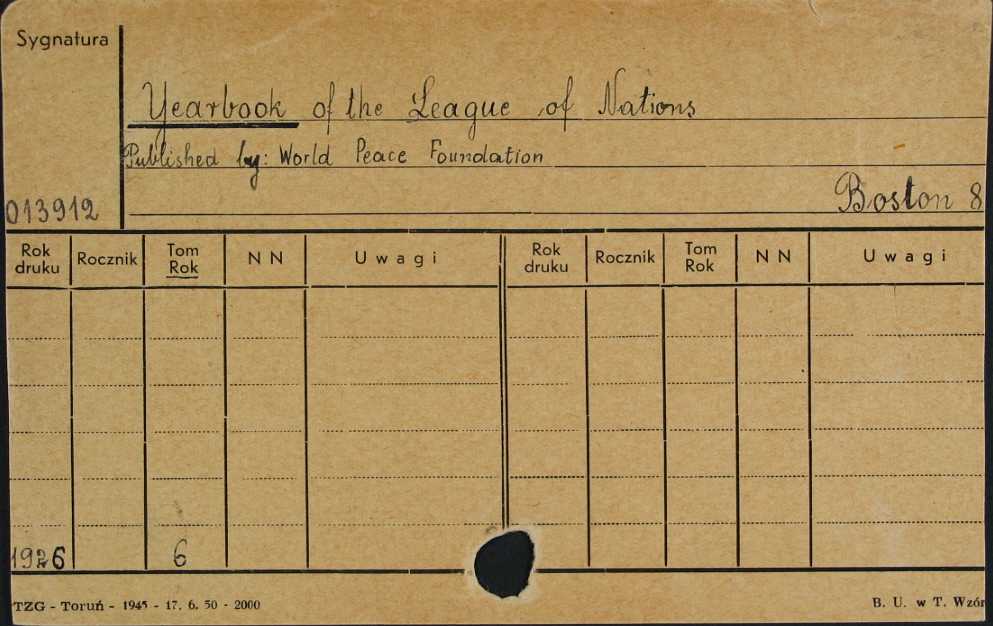 Sygnatura
Yearbook of the League of Nations
Published by: World Peace Foundation
Boston 8
013912
Rok druku Rocznik Tom Rok N N Uwagi Rok druku Rocznik Tom Rok N N Uwagi
1926 6
TZG - Toruń - 1945 - 17. 6. 50 - 2000 B. U. w T. Wzór